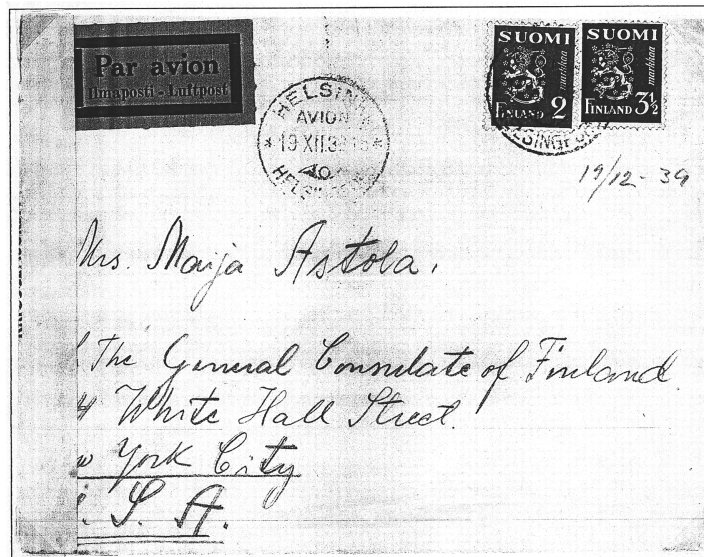 Par avion
Ilmaposti - Luftpost
HELSINKI
AVION
19 XII.39
HELSINGFORS
SUOMI
markkaa
FINLAND 2
SUOMI
markkaa
FINLAND 3½
HELSINGFORS
19/12 - 39
Mrs. Maija Astola.
The General Consulate of Finland
4 White Hall Street.
w York City
. S. A.